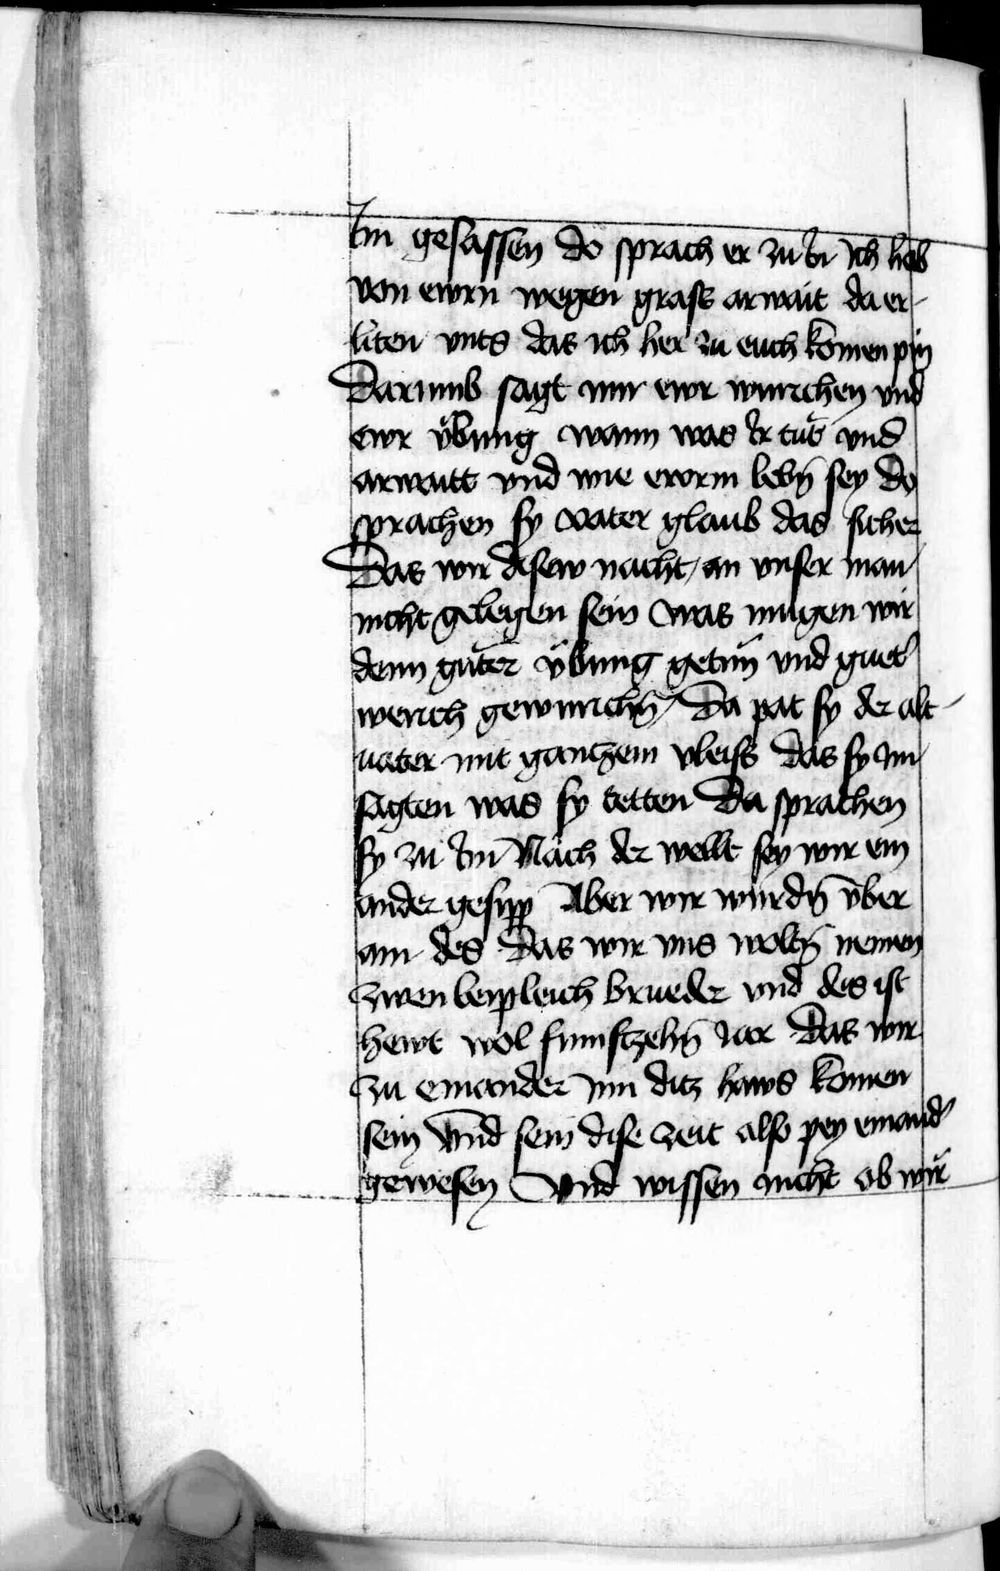 Im gesassen do sprach er zu In Ich hab
von ewrn wegen grass arwait da er-
liten vnts das ich her zu euch komen pin
Darumb sagt mir ewr wurchen vnd
ewr übung wann was Ir tut vnd
arwaitt vnd wie ewrm lebn̄ sey Do
sprachen sy vater glaub das sicher
Das wir disew nacht an vnser man
nicht gelegen sein Was mugen wir
denn guter übung getun vnd guet
werch gewurchn̄ Da pat sy der alt
vater mit ganczem vleiss das sy Im
sagten was sy tetten Da sprachen
sy zu Im Nach der wellt sey wir ein
ander gesipp Aber wir wurdn̄ vber
ain des Das wir vns woltn̄ nemen
zwen leipleich brueder vnd des ist
hewt wol fumfczehn̄ Iar Das wir
zu einander Inn ditz haws komen
sein Vnd sein dise zeit also pey einand̾
gewesen Vnd wissen nicht ob wir